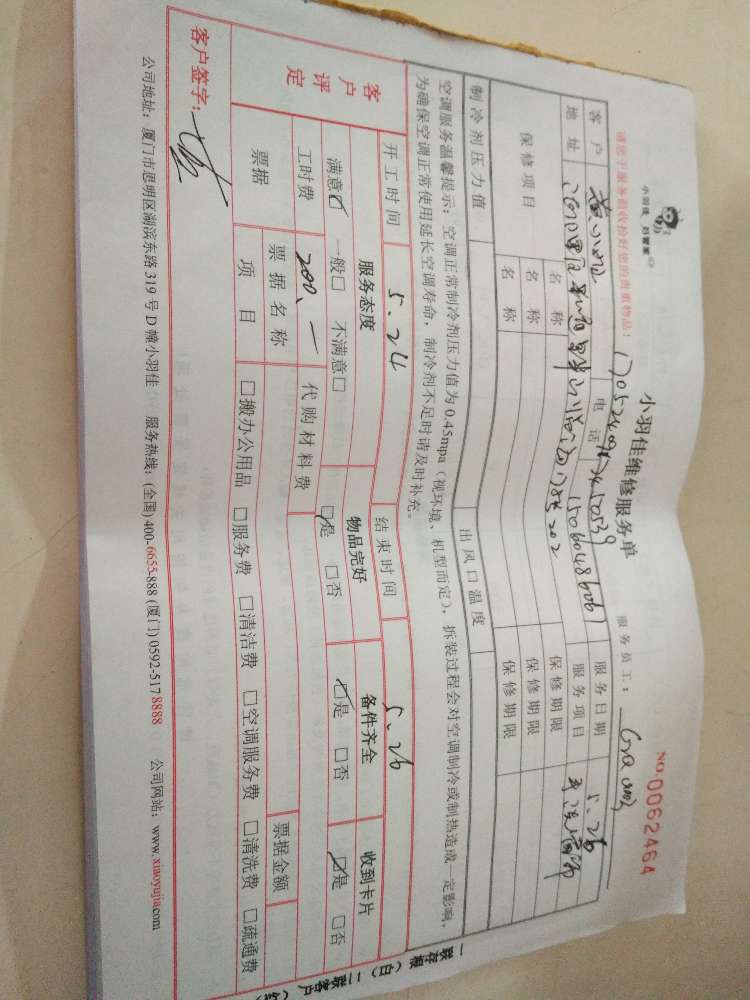 小羽佳 好管家
请您于服务前收捡好您的贵重物品！
小羽佳维修服务单
NO.0062464
服务员工：
客户 电话 15060486061 服务日期 5.26
地址 服务项目
保修项目 名称 保修期限
名称 保修期限
名称 保修期限
制冷剂压力值 出风口温度
空调服务温馨提示：空调正常制冷剂压力值为0.45mpa（视环境、机型而定），拆装过程会对空调制冷或制热造成一定影响，
为确保空调正常使用延长空调寿命，制冷剂不足时请及时补充。
客户评定 开工时间 5.24 结束时间 5.26
服务态度 物品完好 备件齐全 收到卡片
满意☑ 一般□ 不满意□ ☑是 □否 ☑是 □否 ☑是 □否
工时费 200.— 代购材料费
票据 票据名称 票据金额
项目 □搬办公用品 □服务费 □清洁费 □空调服务费 □清洗费 □疏通费
客户签字：
公司地址：厦门市思明区湖滨东路319号D幢小羽佳 服务热线：(全国) 400-6655-888 (厦门) 0592-5178888 公司网站：www.xiaoyujia.com
一联存根（白）二联客户